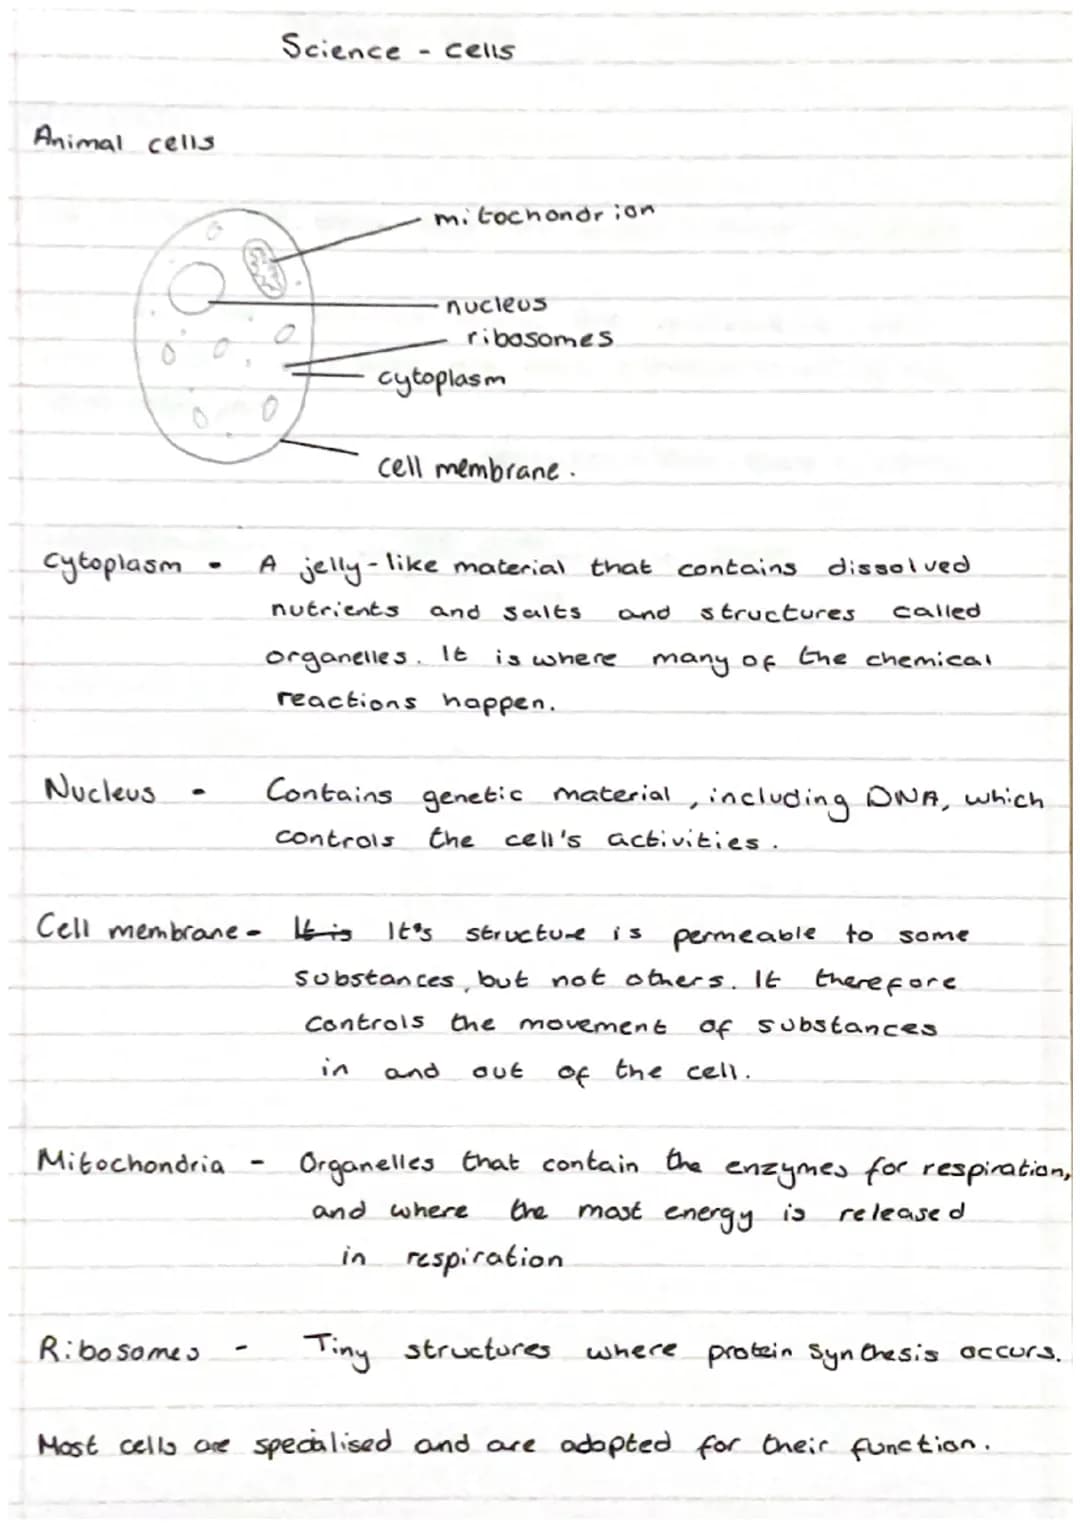 Science - cells
Animal cells
mitochondrion
nucleus
ribosomes
cytoplasm
cell membrane.
cytoplasm - A jelly-like material that contains dissolved
nutrients and salts and structures called
organelles. It is where many of the chemical
reactions happen.
Nucleus - Contains genetic material, including DNA, which
controls the cell's activities.
Cell membrane - It is It's structure is permeable to some
substances, but not others. It therefore
controls the movement of substances
in and out of the cell.
Mitochondria - Organelles that contain the enzymes for respiration,
and where the most energy is released
in respiration
Ribosomes - Tiny structures where protein synthesis occurs.
Most cells are specialised and are adapted for their function.